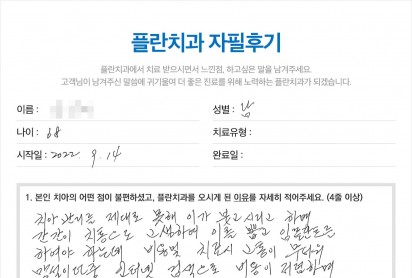 플란치과 자필후기
플란치과에서 치료 받으시면서 느낀점, 하고싶은 말을 남겨주세요.
고객님이 남겨주신 말씀에 귀기울여 더 좋은 진료를 위해 노력하는 플란치과가 되겠습니다.
이름 : 성별 : 남
나이 : 68 치료유형 :
시작일 : 2022. 9. 14 완료일 :
1. 본인 치아의 어떤 점이 불편하셨고, 플란치과를 오시게 된 이유를 자세히 적어주세요. (4줄 이상)
치아 관리를 제대로 못해 이가 붓고 시리고 하며
간간이 치통으로 고생하며 이를 뽑고 임플란트를
하여야 하는데 비용및 치료시 고통이 무서워
망설이다가 인터넷 검색으로 비용이 저렴하며